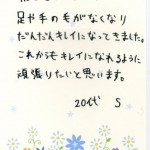 足や手の毛がなくなり
だんだんキレイになってきました。
これからもキレイになれるように
頑張りたいと思います。
20代 S